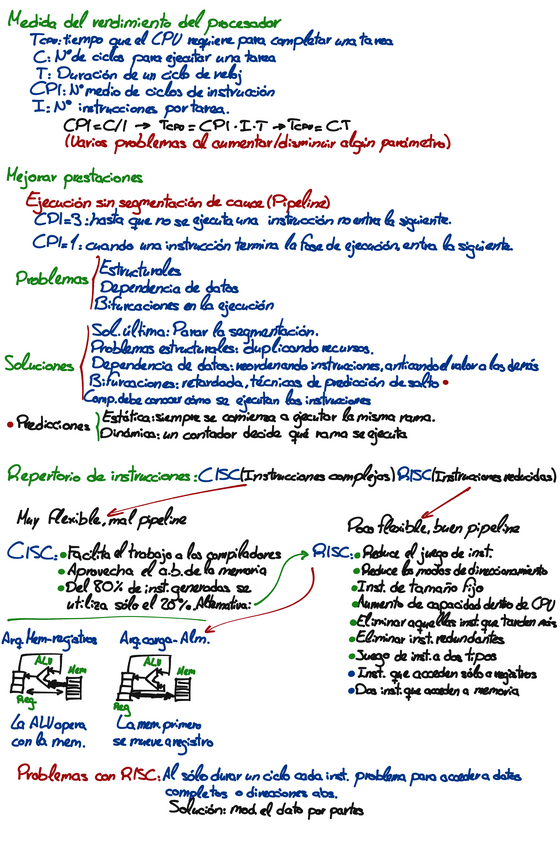 Medida del rendimiento del procesador
Tcpu: tiempo que el CPU requiere para completar una tarea
C: Nº de ciclos para ejecutar una tarea
T: Duración de un ciclo de reloj
CPI: Nº medio de ciclos de instrucción
I: Nº instrucciones por tarea.
CPI = C/I → Tcpu = CPI · I · T → Tcpu = C.T
(Varios problemas al aumentar/disminuir algún parámetro)
Mejorar prestaciones
Ejecución sin segmentación de cauce (Pipeline)
CPI=3: hasta que no se ejecita una instrucción no entra la siguiente.
CPI=1: cuando una instrucción termina la fase de ejecución, entra la siguiente.
Problemas
Estructurales
Dependencia de datos
Bifurcaciones en la ejecución
Soluciones
Sol. última: Parar la segmentación.
Problemas estructurales: duplicando recursos.
Dependencia de datos: reordenando instruciones, anticando el valor a las demás
Bifurcaciones: retardada, técnicas de predicción de salto •
Comp. debe conocer cómo se ejecutan las instruciones
• Predicciones
Estática: siempre se comienza a ejecutar la misma rama.
Dinámica: un contador decide qué rama se ejecuta
Repertorio de instrucciones: CISC (Instrucciones complejas) RISC (Instruciones reducidas)
Muy flexible, mal pipeline
Poco flexible, buen pipeline
CISC: • Facilita el trabajo a los compiladores
• Aprovecha el a.b. de la memoria
• Del 80% de inst. generadas se
utiliza sólo el 25%. Alternativa:
RISC: • Reduce el juego de inst.
• Reduce los modos de direccionamiento
• Inst. de tamaño fijo
• Aumento de capacidad dentro de CPU
• Eliminar aquellas inst. que tarden más
• Eliminar inst. redundantes
• Juego de inst. a dos tipos
• Inst. que acceden sólo a registros
• Dos inst. que acceden a memoria
Arq. Mem-registros
Arq. carga-Alm.
ALU
Mem
Reg
ALU
Mem
Reg
La ALU opera
con la mem.
La mem. primero
se mueve a registro
Problemas con RISC: Al sólo durar un ciclo cada inst. problema para acceder a datos
completos o direciones abs.
Solución: mod. el dato por partes